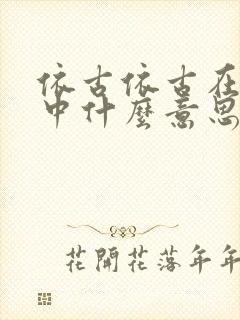 依古依古在
中什麼意思
花開花落年年